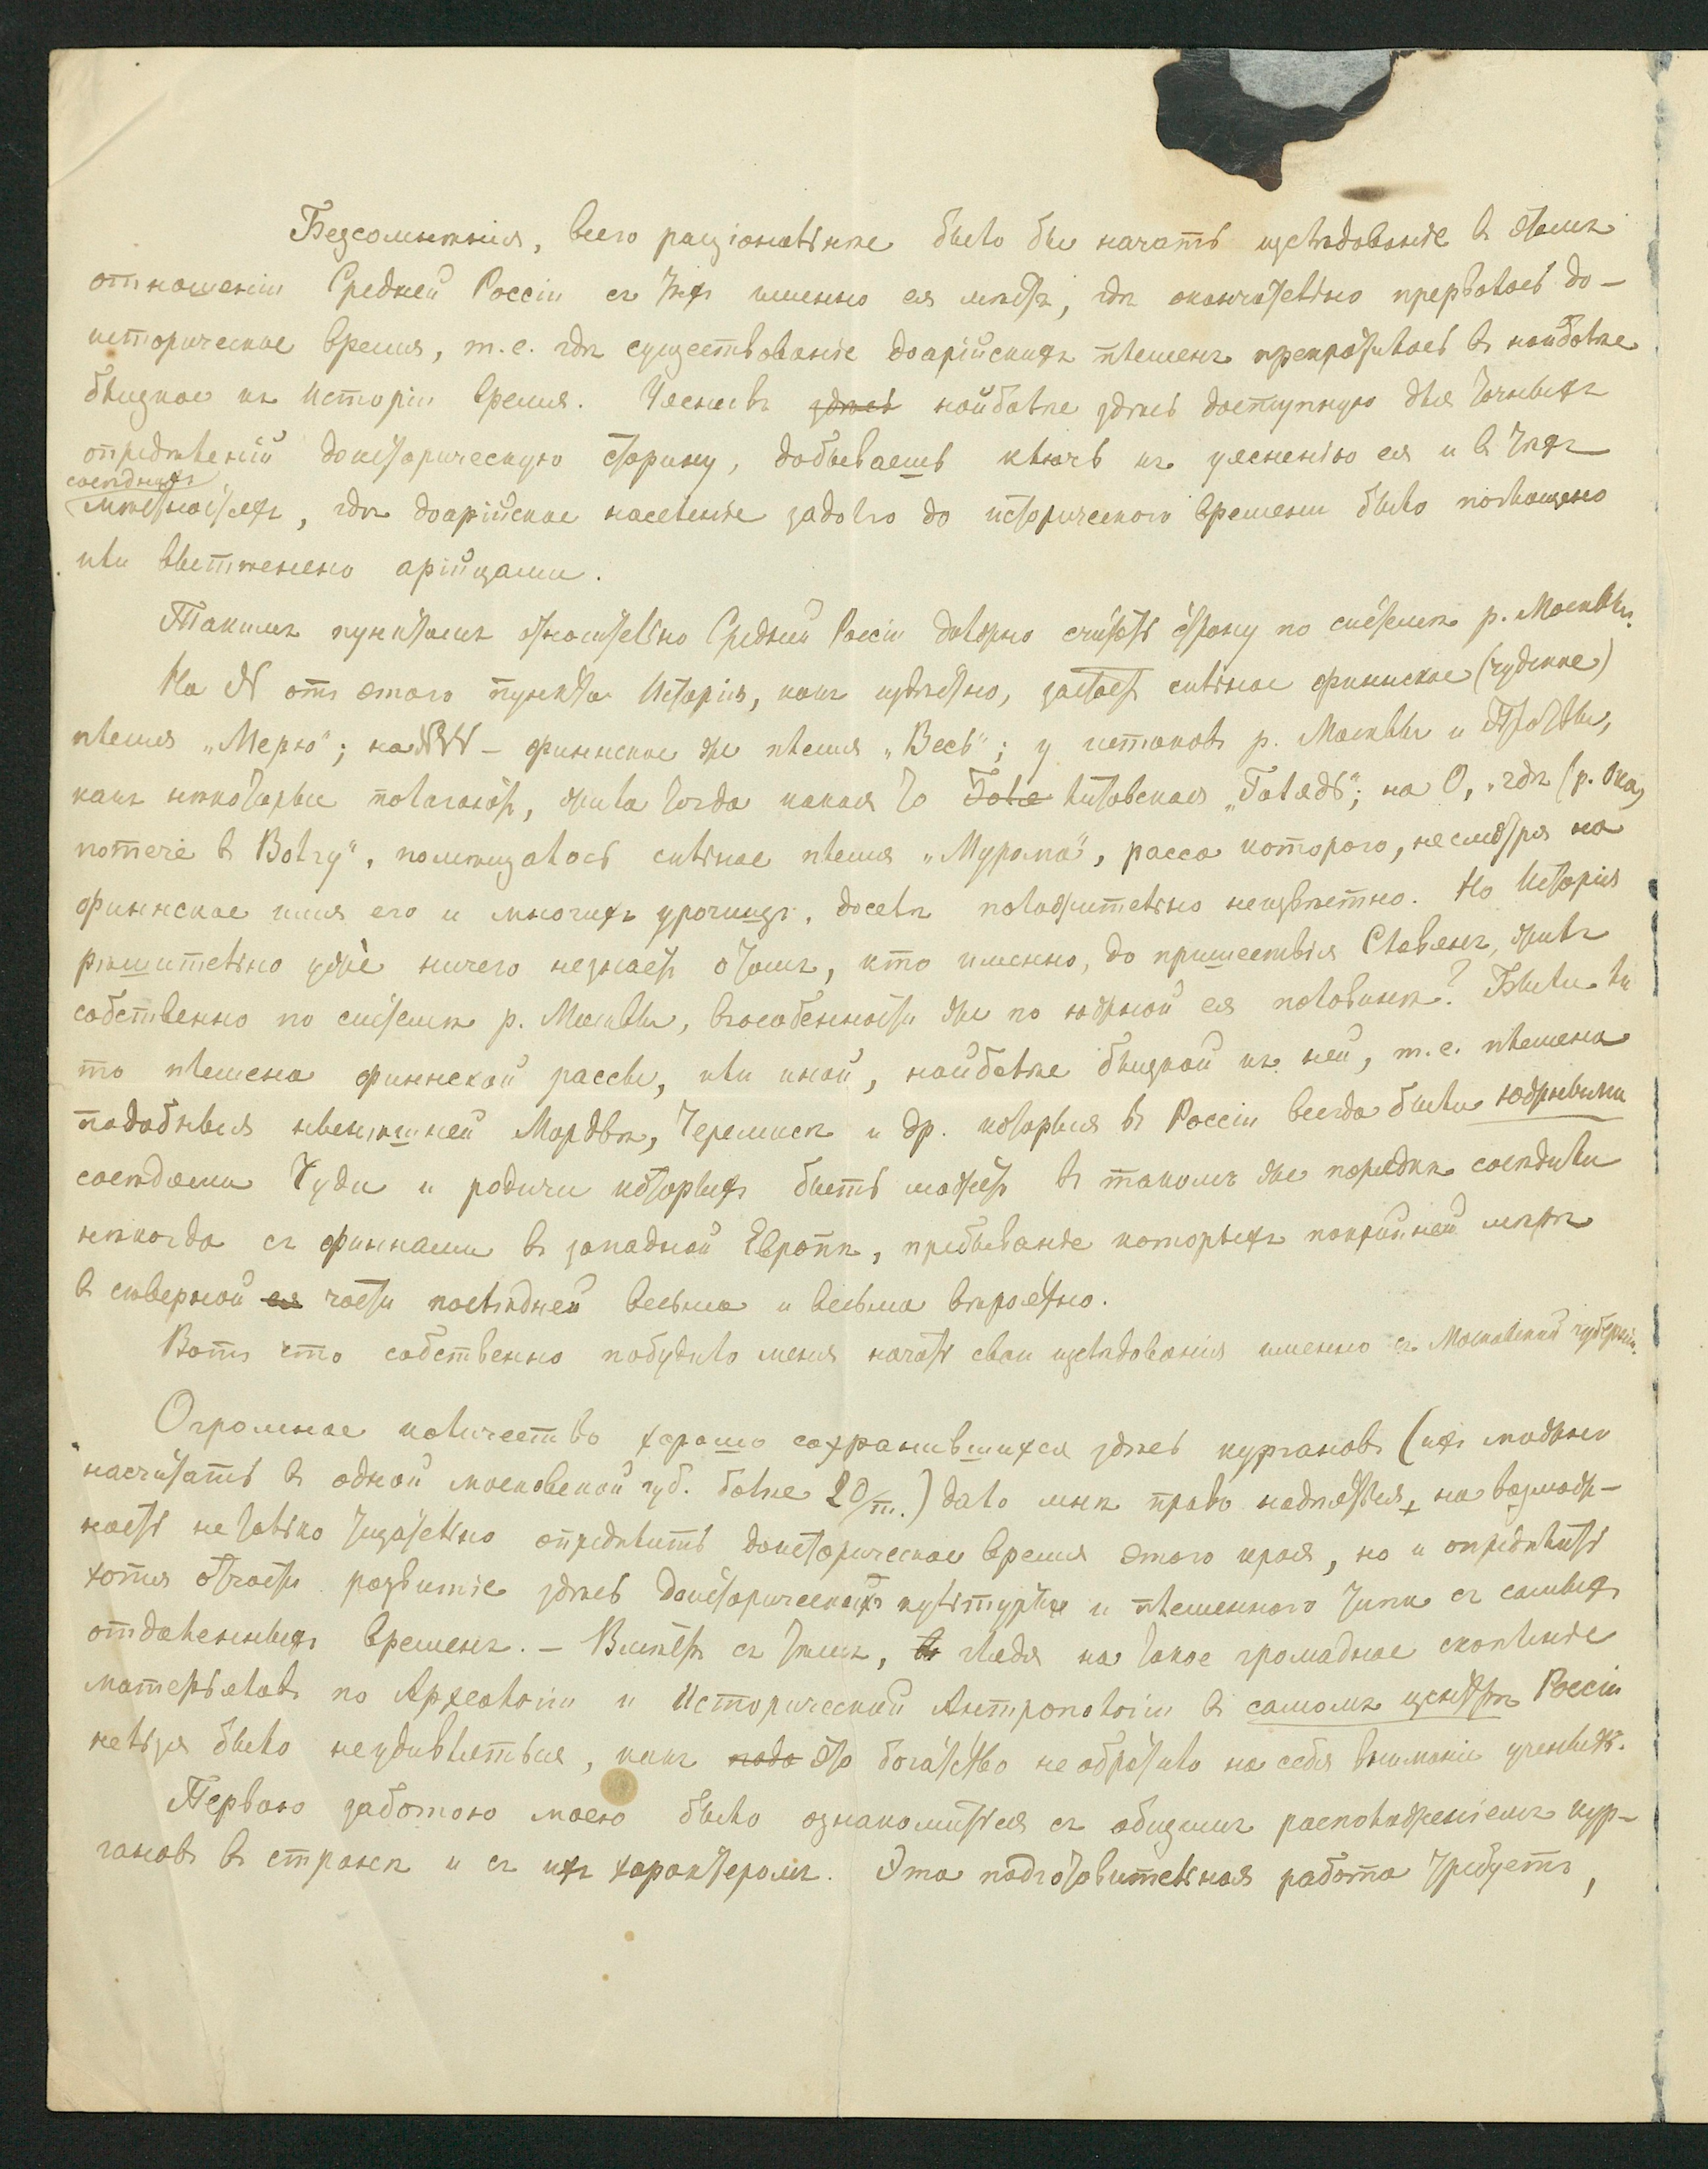 Безсомнѣнія, всего раціональнѣе было бы начать изслѣдованіе въ этомъ
отношеніи Средней Россіи съ тѣхъ именно ея мѣстъ, гдѣ окончательно прервалось до-
историческое время, т.е. гдѣ существованіе доарійскихъ племенъ прекратилось въ наиболѣе
близкое къ Исторіи время. Уяснивъ здѣсь наиболѣе здѣсь доступную для точныхъ
опредѣленій доисторическую старину, добываешь ключъ къ уясненію ея и въ тѣхъ
сосѣднихъ
мѣстностяхъ, гдѣ доарійское населеніе задолго до историческаго времени было поглощено
или вытѣснено арійцами.
Такимъ пунктомъ относительно Средней Россіи должно считать страну по системѣ р. Москвы.
На N отъ этого пункта Исторія, какъ извѣстно, застаетъ сильное финнское (чудское)
племя „Мерю"; на NW – финнское же племя „Весь"; у истоковъ р. Москвы и Протвы,
какъ нѣкоторые полагаютъ, жила тогда какая то Голя литовская „Голядь"; на О, гдѣ (р. Ока,
потече въ Волгу", помѣщалось сильное племя „Мурома", расса котораго, несмотря на
финнское имя его и многихъ урочищъ, доселѣ положительно неизвѣстно. Но Исторія
рѣшительно уже ничего незнаетъ отомъ, кто именно, до пришествія Славянъ, жилъ
собственно по системѣ р. Москвы, вособенности же по южной ея половинѣ? Были ли
то племена финнской рассы, или иной, наиболѣе близкой къ ней, т.е. племена
подобныя нынѣшней Мордвѣ, Черемисѣ и др. которыя въ Россіи всегда были южными
сосѣдями Чуди и родичи которыхъ быть можетъ въ такомъ же порядкѣ сосѣдили
нѣкогда съ финнами въ западной Европѣ, пребываніе которыхъ покрайней мѣрѣ
въ сѣверной ея части послѣдней весьма и весьма вѣроятно.
Вотъ что собственно побудило меня начать свои изслѣдованія именно съ Московской губерніи.
Огромное количество хорошо сохранившихся здѣсь кургановъ (ихъ можно
насчитать въ одной московской губ. болѣе 20/т.) дало мнѣ право надѣяться, на возмож-
ность не только тщательно опредѣлить доисторическое время этого края, но и опредѣлить
хотя отчасти развитіе здѣсь доисторической культуры и племеннаго типа съ самыхъ
отдаленныхъ временъ. – Вмѣстѣ съ тѣмъ, въ глядя на такое громадное скопленіе
матерьяловъ по Археологіи и Исторической Антропологіи въ самомъ центрѣ Россіи
нельзя было неудивляться, какъ это богатство не обратило на себя вниманіи ученыхъ.
Первою заботою моею было ознакомиться съ общимъ расположеніемъ кур-
гановъ въ странѣ и съ ихъ характеромъ. Эта подготовительная работа требуетъ,